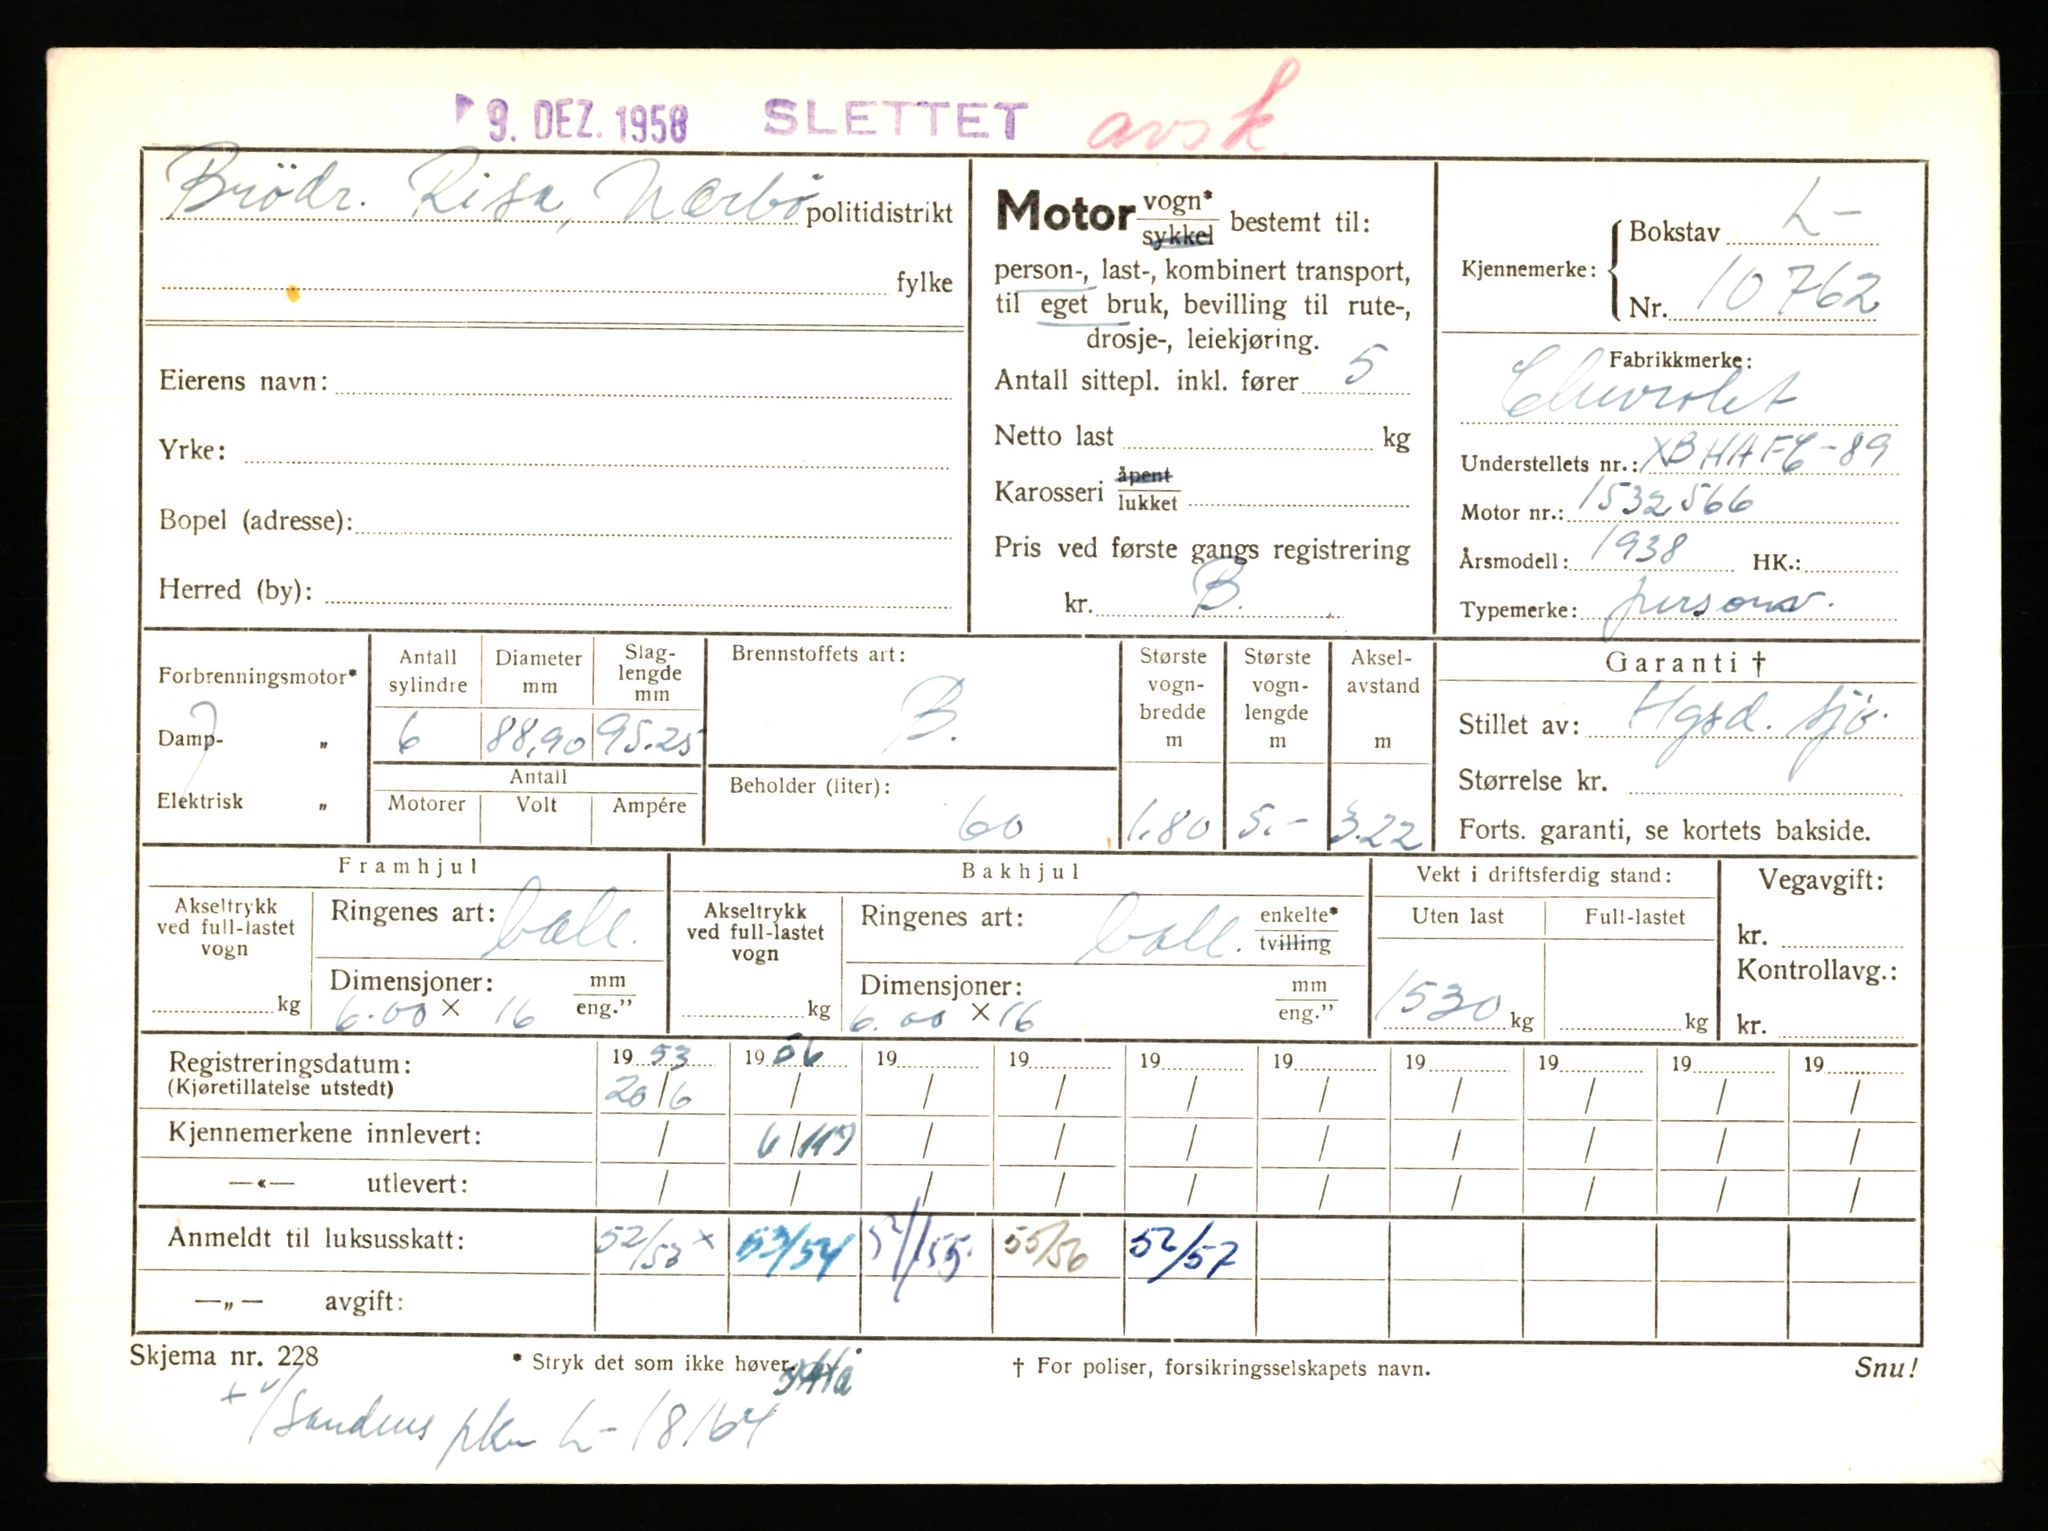 9. DEZ. 1958 SLETTET avsk.
Brödr. Risa, Nærbö politidistrikt
fylke
Eierens navn:
Yrke:
Bopel (adresse):
Herred (by):
Motor vogn* sykkel bestemt til:
person-, last-, kombinert transport,
til eget bruk, bevilling til rute-,
drosje-, leiekjøring.
Antall sittepl. inkl. fører 5
Netto last kg
Karosseri åpent lukket
Pris ved første gangs registrering
kr. B.
Kjennemerke: Bokstav L-
Nr. 10762
Fabrikkmerke:
Chevrolet
Understellets nr.:
Motor nr.: 1532566
Årsmodell: 1938 HK.:
Typemerke: personv.
Forbrenningsmotor*
Damp- „
Elektrisk „
Antall sylindre 6
Diameter mm 88,90
Slaglengde mm 95.25
Antall
Motorer Volt Ampére
Brennstoffets art:
B.
Beholder (liter):
60
Største vogn-bredde m 1.80
Største vogn-lengde m 5.-
Aksel-avstand m 3.22
Garanti †
Stillet av: Hgsd. Sjö.
Størrelse kr.
Forts. garanti, se kortets bakside.
Framhjul
Akseltrykk ved full-lastet vogn
kg
Ringenes art: ball.
Dimensjoner: mm eng."
6.00 × 16
Bakhjul
Akseltrykk ved full-lastet vogn
kg
Ringenes art: ball. enkelte* tvilling
Dimensjoner: mm eng."
6.00 × 16
Vekt i driftsferdig stand:
Uten last Full-lastet
1530 kg kg
Vegavgift:
kr.
Kontrollavg.:
kr.
Registreringsdatum: 19 53 19 56 19 19 19 19 19 19 19 19
(Kjøretillatelse utstedt) 20/6 / / / / / / / / /
Kjennemerkene innlevert: / 6/ / / / / / / / /
—«— utlevert: / / / / / / / / / /
Anmeldt til luksusskatt: 52/53 × 53/54 54/55 55/56 56/57
—„— avgift:
Skjema nr. 228 * Stryk det som ikke høver. † For poliser, forsikringsselskapets navn. Snu!
+ v/ Sandnes L-18164